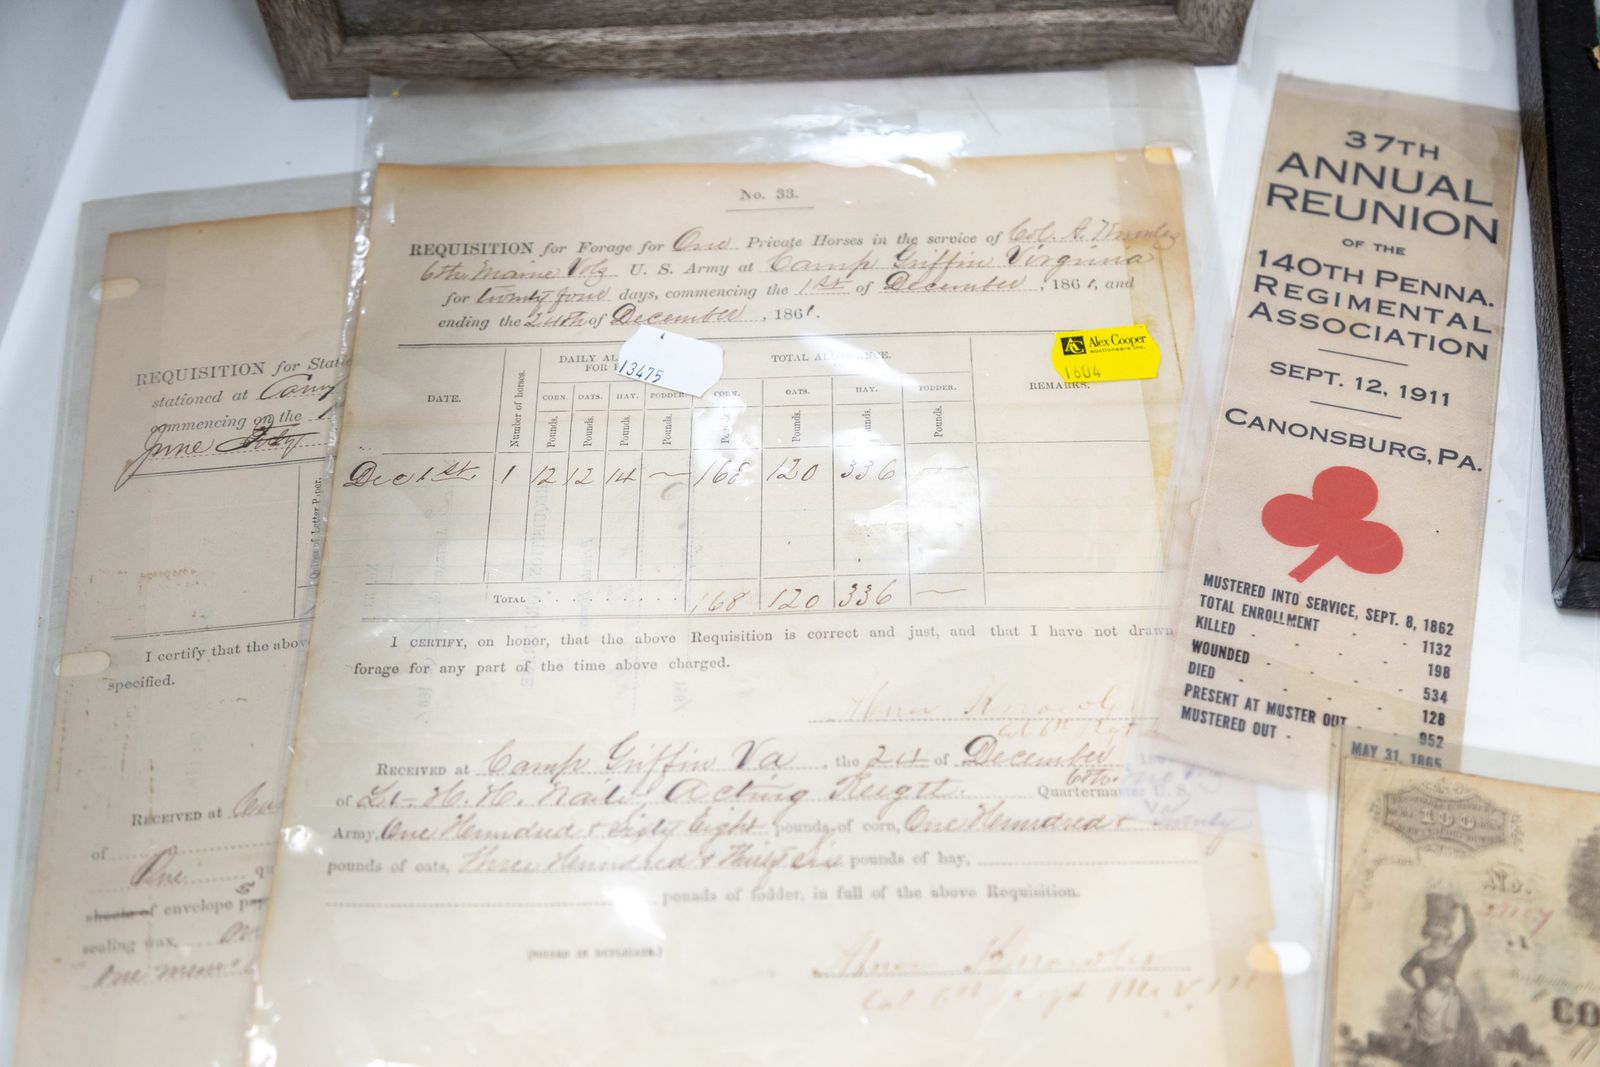 REQUISITION for
stationed at Camp
commencing on the 1
June
Quires of Letter Paper.
I certify that the abov
specified.
RECEIVED at
of
One qu
sheets of envelope
sealing wax,
No. 33.
REQUISITION for Forage for One Private Horses in the service of Col. A. Knowles
6th Maine Vols U. S. Army at Camp Griffin Virginia
for twenty four days, commencing the 1st of December, 1861, and
ending the 24th of December, 1861.
DATE. Number of horses. DAILY AL TOTAL ALLOWANCE. REMARKS.
FOR
CORN. OATS. HAY. FODDER. CORN. OATS. HAY. FODDER.
Pounds. Pounds. Pounds. Pounds. Pounds. Pounds. Pounds. Pounds.
Dec 1st 1 12 12 14 — 168 120 336 —
TOTAL 168 120 336 —
I CERTIFY, on honor, that the above Requisition is correct and just, and that I have not drawn
forage for any part of the time above charged.
Abner Knowles
RECEIVED at Camp Griffin Va, the 24 of December
of Lt. H. H. Acting Quartermaster U. S.
Army, One Hundred & Sixty Eight pounds of corn, One Hundred &
pounds of oats, Three Hundred & Thirty Six pounds of hay,
pounds of fodder, in full of the above Requisition.
(SIGNED IN DUPLICATE.)
Abner Knowles
13475
Alex Cooper
auctioneers inc.
1604
37TH
ANNUAL
REUNION
OF THE
140TH PENNA.
REGIMENTAL
ASSOCIATION
SEPT. 12, 1911
CANONSBURG, PA.
MUSTERED INTO SERVICE, SEPT. 8, 1862
TOTAL ENROLLMENT - - 1132
KILLED - - - - 198
WOUNDED - - - - 534
DIED - - - - 128
PRESENT AT MUSTER OUT - 952
MUSTERED OUT - MAY 31, 1865
100
No.
CO